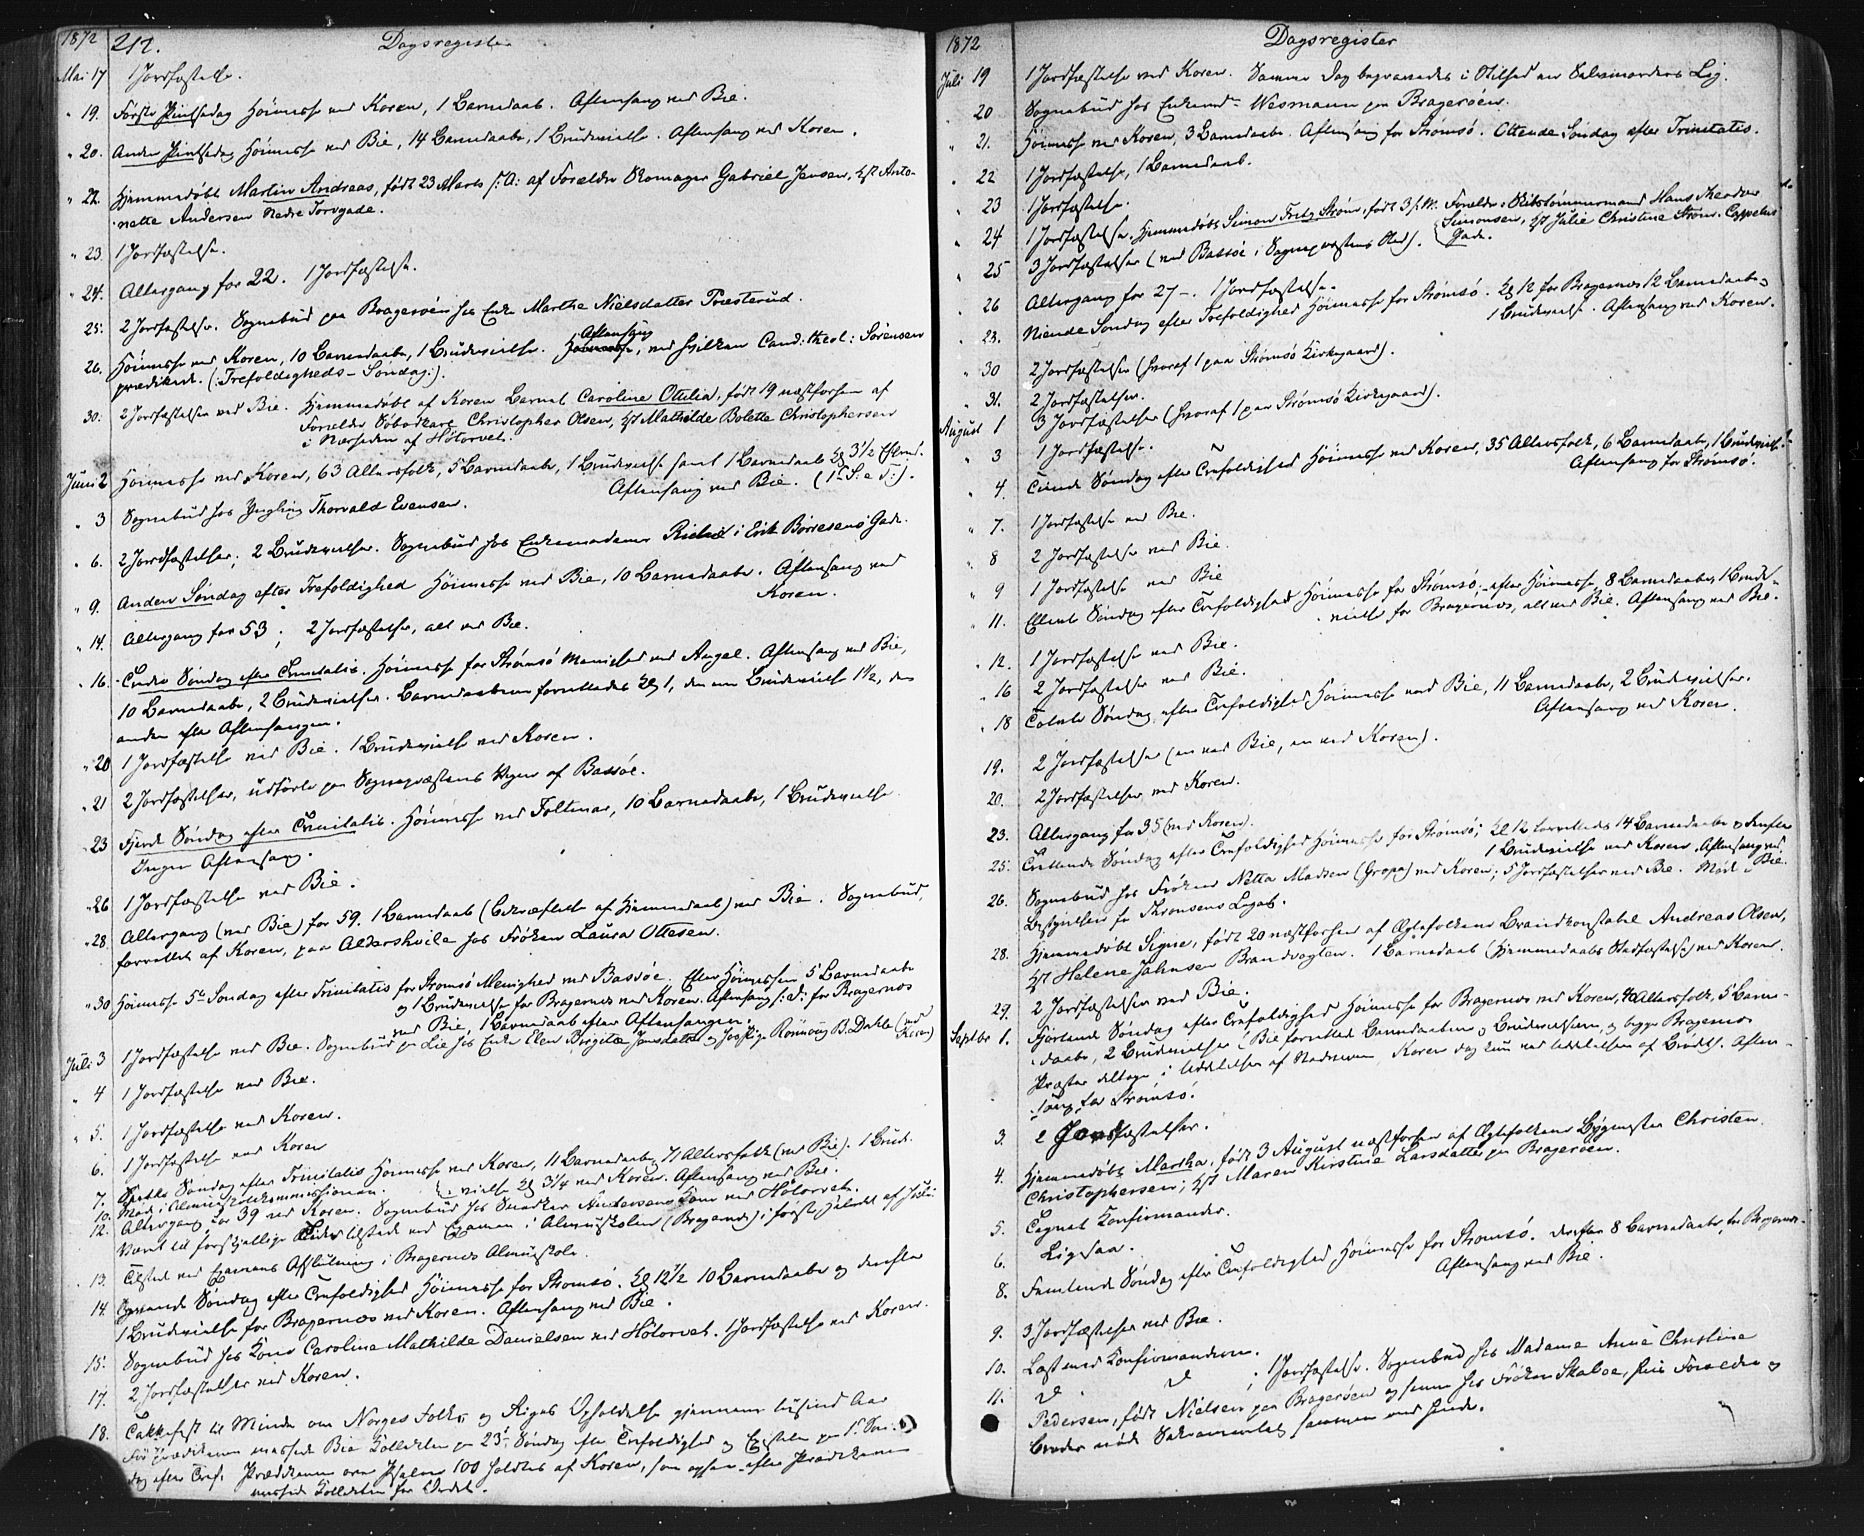 1872 212. Dagsregister
Mai 17 1 Jordfæstelse.
" 19. Første Pintsedag Høimesse ved Koren, 1 Barnedaab. Aftensang ved Bie.
" 20. Anden Pintsedag Høimesse ved Bie, 14 Barnedaabe, 1 Brudevielse. Aftensang ved Koren.
" 22. Hjemmedøbt Martin Andreas, født 23 Marts s: A: af Forældre Skomager Gabriel Jensen, Hst Anto-
nette Andersen Nedre Torvgade.
" 23. 1 Jordfæstelse.
" 24. Altergang for 22. 1 Jordfæstelse.
25. 2 Jordfæstelse. Sognebud paa Bragerøen hos Enke Marthe Nielsdatter Træsterud.
26. Høimesse ved Koren, 10 Barnedaabe, 1 Brudevielse. Aftensang, ved hvilken Cand: theol: Sørensen
prædikede. (: Trefoldigheds-Søndag:).
30. 2 Jordfæstelser ved Bie. Hjemmedøbt af Koren Barnet Caroline Ottilia, født 19 næstforhen af
Forældre Christopher Olsen, Hst Mathilde Bolette Christophersen
i Nærheden af Høtorvet.
Juni 2 Høimesse ved Koren, 63 Altersfolk, 5 Barnedaabe, 1 Brudevielse samt 1 Barnedaab Kl 3 1/2 Efterm.
Aftensang ved Bie. (1ste S: e T:).
" 3 Sognebud hos Yngling Thorvald Evensen.
" 6. 2 Jordfæstelser, 2 Brudevielser. Sognebud hos Enkemadame i Erik Børresens Gade.
" 9. Anden Søndag efter Trefoldighed Høimesse ved Bie, 10 Barnedaabe. Aftensang ved
Koren.
" 14. Altergang for 53; 2 Jordfæstelser, alt ved Bie.
" 16. Tredie Søndag efter Trinitatis. Høimesse for Strømsø Menighed ved Angel. Aftensang ved Bie,
10 Barnedaabe, 2 Brudevielser. Barnedaaben forrettedes Kl 1, den ene Brudevielse 1 1/2, den
anden efter Aftensangen.
" 20 1 Jordfæstelse ved Bie. 1 Brudevielse ved Koren.
" 21 2 Jordfæstelser, udførte paa Sognepræstens Vegne af Bassøe.
" 23 Fjerde Søndag efter Trinitatis. Høimesse ved Feltmar, 10 Barnedaabe, 1 Brudevielse.
Ingen Aftensang.
" 26 1 Jordfæstelse ved Bie.
" 28 Altergang (ved Bie) for 59. 1 Barnedaab (Bekræftelse af Hjemmedaab) ved Bie. Sognebud,
forrettet af Koren, paa Aldershvile hos Frøken Laura Ottesen.
" 30 Høimesse 5te Søndag efter Trinitatis for Strømsø Menighed ved Bassøe. Efter Høimessen 5 Barnedaabe
og 1 Brudevielse for Bragernes ved Koren. Aftensang s: D: for Bragernes
ved Bie, 1 Barnedaab efter Aftensangen.
Juli 3 1 Jordfæstelse ved Bie. Sognebud paa Lie hos Enke Elen Birgitte Jensdatter og Rønnaug B. Dahle (ved
Koren)
" 4 1 Jordfæstelse ved Bie.
" 5. 1 Jordfæstelse ved Koren.
6. 1 Jordfæstelse ved Koren
7. Sjette Søndag efter Trinitatis Høimesse ved Koren, 11 Barnedaabe, 71 Altersfolk (ved Bie). 1 Brude-
vielse Kl 3 1/4 ved Koren. Aftensang ved Bie.
10. Møde i Almueskolekommissionen.
12. Altergang for 39 ved Koren. Sognebud hos Snedker Andersens Kone ved Høtorvet.
Været til forskjellige Tider tilstede ved Examen i Almueskolen (Bragernes) i første Halvdel af Juli.
13. Tilstede ved Examens Afslutning i Bragernes Almueskole.
14. Syvende Søndag efter Trefoldighed Høimesse for Strømsø. Kl 12 1/2 10 Barnedaabe og derefter
1 Brudevielse for Bragernes ved Koren. Aftensang ved Bie.
15. Sognebud hos Kone Caroline Mathilde Danielsen ved Høtorvet. 1 Jordfæstelse ved Koren.
17. 2 Jordfæstelser ved Koren.
18. Takkefest til Minde om Norges Folks og Riges Opholdelse gjennem tusind Aar
Før Prædikenen messede Bie Kollekten paa 23de Søndag efter Trefoldighed og Epistelen paa 1ste Søn-
dag efter Tref. Prædikenen over Psalme 100 holdtes af Koren, som ogsaa efter Prædikenen
messede Kollekten for Ordet.
1872 Dagsregister
Juli 19 1 Jordfæstelse ved Koren. Samme Dag begravedes i Stilhed en Selvmorders Lig.
" 20 Sognebud hos Enkemd. Wesmann paa Bragerøen.
" 21. Høimesse ved Koren, 3 Barnedaabe. Aftensang for Strømsø. Ottende Søndag efter Trinitatis.
" 22 1 Jordfæstelse, 1 Barnedaab.
" 23 1 Jordfæstelse.
" 24 1 Jordfæstelse. Hjemmedøbt Simon Fritz Strøm, født 3 s: M. Forældre: Skibstømmermand Hans Theodor
Simonsen, Hst Julie Christine Strøm. Cappelens
Gade.
" 25 3 Jordfæstelser (ved Bassøe i Sognepræstens Sted).
" 26 Altergang for 27. 1 Jordfæstelse.
" 28. Niende Søndag efter Trefoldighed Høimesse for Strømsø. Kl 12 for Bragernes 12 Barnedaabe,
1 Brudevielse. Aftensang ved Koren.
" 30 2 Jordfæstelser (hvoraf 1 paa Strømsø Kirkegaard).
" 31. 2 Jordfæstelser.
August 1 3 Jordfæstelser (hvoraf 1 paa Strømsø Kirkegaard).
" 3 1 Jordfæstelse.
" 4. Tiende Søndag efter Trefoldighed Høimesse ved Koren, 35 Altersfolk, 6 Barnedaabe, 1 Brudevielse.
Aftensang for Strømsø.
" 7. 1 Jordfæstelse ved Bie.
" 8 2 Jordfæstelser ved Bie.
" 9 1 Jordfæstelse ved Bie
" 11. Ellevte Søndag efter Trefoldighed Høimesse for Strømsø, efter Høimesse, 8 Barnedaabe, 1 Brude-
vielse for Bragernes, alt ved Bie. Aftensang ved Bie.
" 12. 1 Jordfæstelse ved Bie.
" 16 2 Jordfæstelser ved Bie.
" 18 Tolvte Søndag efter Trefoldighed Høimesse ved Bie, 11 Barnedaabe, 2 Brudevielser.
Aftensang ved Koren.
19. 2 Jordfæstelser (en ved Bie, en ved Koren).
20. 2 Jordfæstelser ved Koren.
23. Altergang for 35 (ved Koren).
25. Trettende Søndag efter Trefoldighed Høimesse for Strømsø; Kl 12 forrettedes 14 Barnedaabe og derefter
1 Brudevielse ved Koren. Aftensang ved
Bie.
26. Sognebud hos Frøken Netta Madsen (Gropa) ved Koren; 5 Jordfæstelser ved Bie. Møde i
Bestyrelsen for Thronsens Legat.
28. Hjemmedøbt Signe, født 20 næstforhen af Ægtefolkene Brandkonstabel Andreas Olsen,
Hst Helene Johnsen Brandvagten. 1 Barnedaab (Hjemmedaabs Stadfæstelse) ved Koren.
29. 2 Jordfæstelser ved Bie.
Septbr 1. Fjortende Søndag efter Trefoldighed Høimesse for Bragernes ved Koren, 40 Altersfolk, 5 Barne-
daabe, 2 Brudevielser (Bie forrettede Barnedaaben og Brudevielserne, og begge Bragernes
Præster deltoge i Uddelelsen af Nadveren, Koren dog kun ved Uddelelsen af Brødet). Aften-
sang for Strømsø.
3. 2 Jordfæstelser.
4. Hjemmedøbt Martha, født 3 August næstforhen af Ægtefolkene Bygmester Christen
Christophersen, Hst Maren Kirstine Larsdatter paa Bragerøen.
5. Tegnet Konfirmander.
6. Ligesaa.
8. Femtende Søndag efter Trefoldighed Høimesse for Strømsø. derefter 8 Barnedaabe for Bragernes.
Aftensang ved Bie.
9. 3 Jordfæstelser ved Bie.
10. Læst med Konfirmanderne.
11. d d ; 1 Jordfæstelse. Sognebud hos Madame Anne Christine
Pedersen, født Nielsen paa Bragerøen og samme hos Frøken Skaboe, hvis Forældre og
Broder nøde Sakramentet sammen med hende.